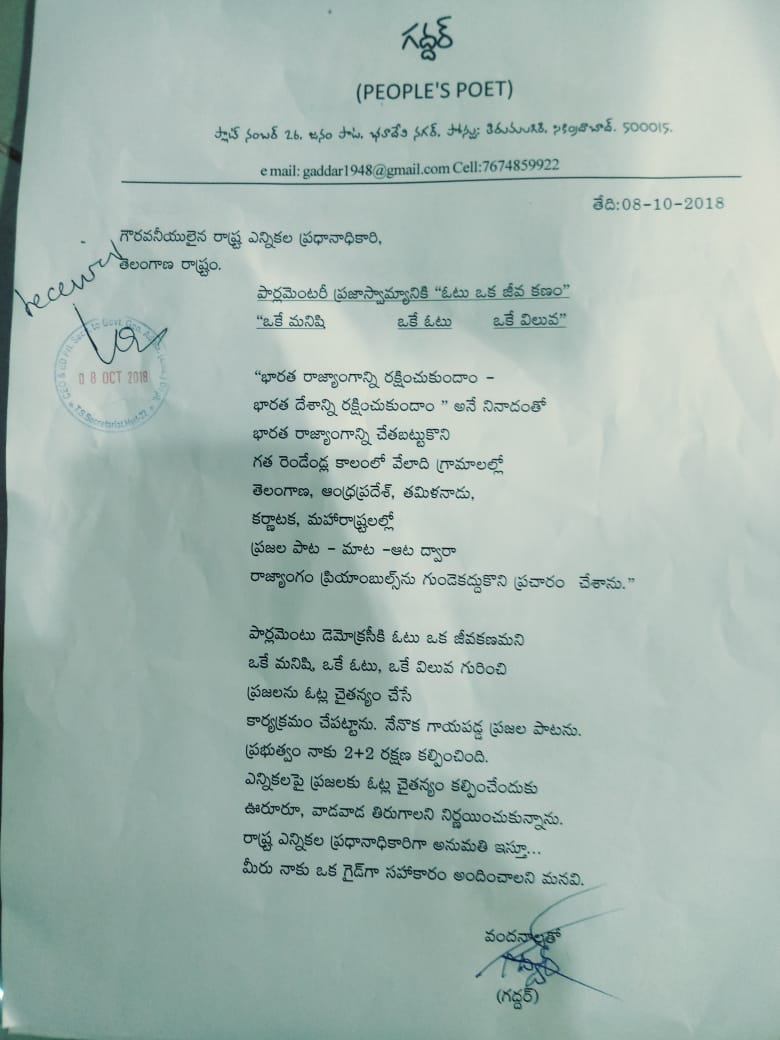 గద్దర్
(PEOPLE'S POET)
ప్లాట్ నంబర్ 26, జనం పాట, భూదేవి నగర్, పోస్టు: తిరుమలగిరి, సికింద్రాబాద్. 500015.
e mail: gaddar1948@gmail.com Cell:7674859922
తేది:08-10-2018
గౌరవనీయులైన రాష్ట్ర ఎన్నికల ప్రధానాధికారి,
తెలంగాణ రాష్ట్రం.
received
పార్లమెంటరీ ప్రజాస్వామ్యానికి “ఓటు ఒక జీవ కణం”
“ఒకే మనిషి ఒకే ఓటు ఒకే విలువ”
08 OCT 2018
“భారత రాజ్యాంగాన్ని రక్షించుకుందాం –
భారత దేశాన్ని రక్షించుకుందాం ” అనే నినాదంతో
భారత రాజ్యాంగాన్ని చేతబట్టుకొని
గత రెండేండ్ల కాలంలో వేలాది గ్రామాలల్లో
తెలంగాణ, ఆంధ్రప్రదేశ్, తమిళనాడు,
కర్ణాటక, మహారాష్ట్రలల్లో
ప్రజల పాట – మాట –ఆట ద్వారా
రాజ్యాంగం ప్రియాంబుల్స్‌ను గుండెకద్దుకొని ప్రచారం చేశాను.”
పార్లమెంటు డెమోక్రసీకి ఓటు ఒక జీవకణమని
ఒకే మనిషి, ఒకే ఓటు, ఒకే విలువ గురించి
ప్రజలను ఓట్ల చైతన్యం చేసే
కార్యక్రమం చేపట్టాను. నేనొక గాయపడ్డ ప్రజల పాటను.
ప్రభుత్వం నాకు 2+2 రక్షణ కల్పించింది.
ఎన్నికలపై ప్రజలకు ఓట్ల చైతన్యం కల్పించేందుకు
ఊరూరూ, వాడవాడ తిరుగాలని నిర్ణయించుకున్నాను.
రాష్ట్ర ఎన్నికల ప్రధానాధికారిగా అనుమతి ఇస్తూ...
మీరు నాకు ఒక గైడ్‌గా సహాకారం అందించాలని మనవి.
వందనాలతో
గద్దర్
(గద్దర్)